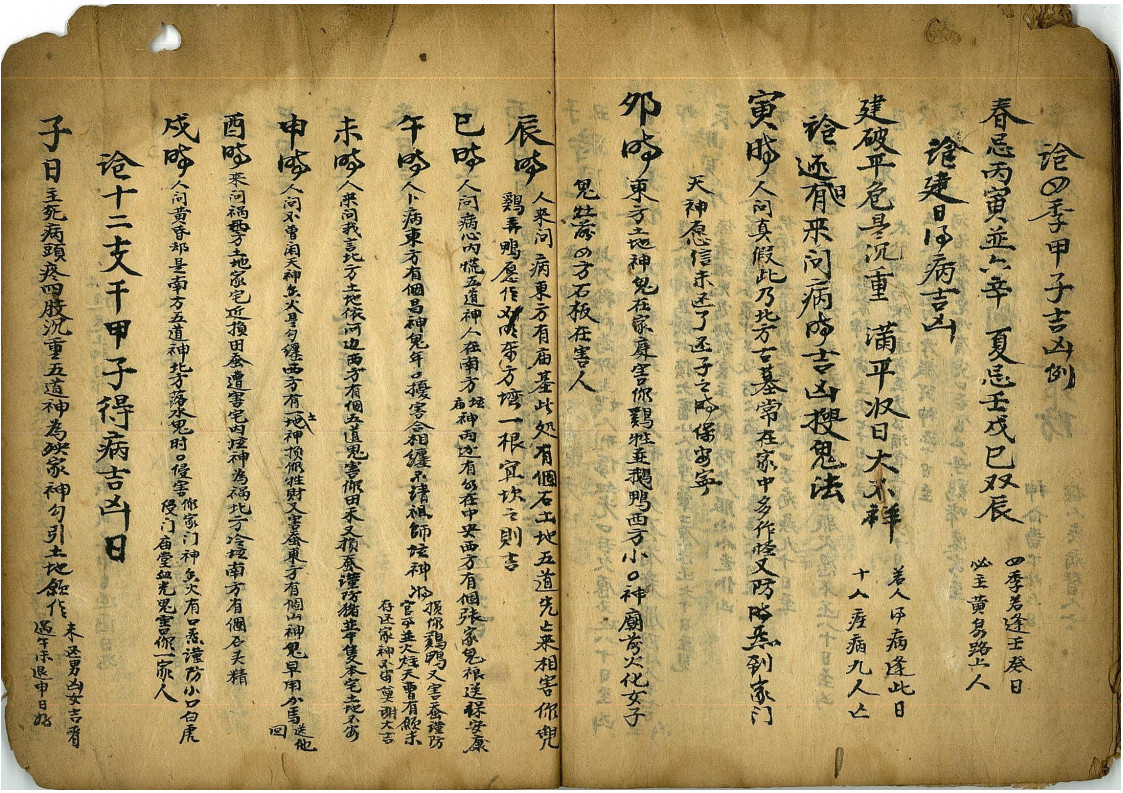 論四季甲子吉凶例
春忌丙寅並六辛 夏忌壬戌巳双辰
四季若逢壬癸日
必主黄泉路上人
論建日得病吉凶
建破平危是沉重 满平收日大不祥
若人得病逢此日
十人疾病九人亡
論还有来问病時吉凶搜鬼法
寅時人问真假此乃北方一墓常在家中多作怪又防 到家门
天神愿信未还了丕子之時保安寧
卯時東方土地神鬼在家麻害你鷄牲並鵝鸭西方小口神廟前火化女子
鬼 四方石板在害人
辰時人来问病東方有庙基此処有個石土地五道先上来相害你
鷄弄鸭愿作 东方墻一根宜坎之則吉
巳時人问病心内慌五道神人在南方坛庙神两边有 在中央西方有個張家鬼 送保安康
午時人卜病東方有個昌神鬼年口擾害合相纏不請祖師坛神
損你鷄鸭又害蚕谨防
官 並火燒天曹有願未
存还家神不宙莫謝大吉
未時人来问我言北方土地依河边西方有個五道鬼害你田禾人损蚕谨防猪並牛隻本宅土地不安
申時人问不曾用天神魚火是勾纏西方有土地神損你牲財又害蚕東方有個山神鬼早用 馬送他回
酉時来问祸 方土地家宅近損田蚕遭害宅内坛神為禍北方冷坛南方有個石头精
戌時人问黄昏却是南方五道神北方落水鬼时口侵害
你家门神魚火有口 谨防小口白虎
侵门庙堂血光鬼害你一家人
論十二支干甲子得病吉凶日
子日主死病頭疼四肢沉重五道神為殃家神勾引土地 作
未还男凶女吉看
過午未退申日好